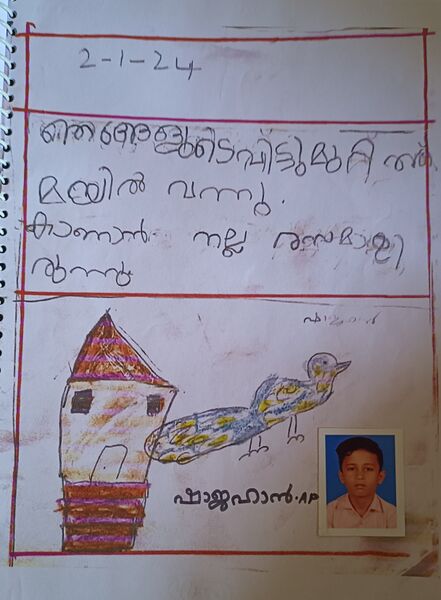 2-1-24
ഞങ്ങളുടെ വീട്ടുമുറ്റത്ത്
മയിൽ വന്നു.
കാണാൻ നല്ല രസമായി
രുന്നു
ഷാജഹാൻ
ഷാജഹാൻ.AP